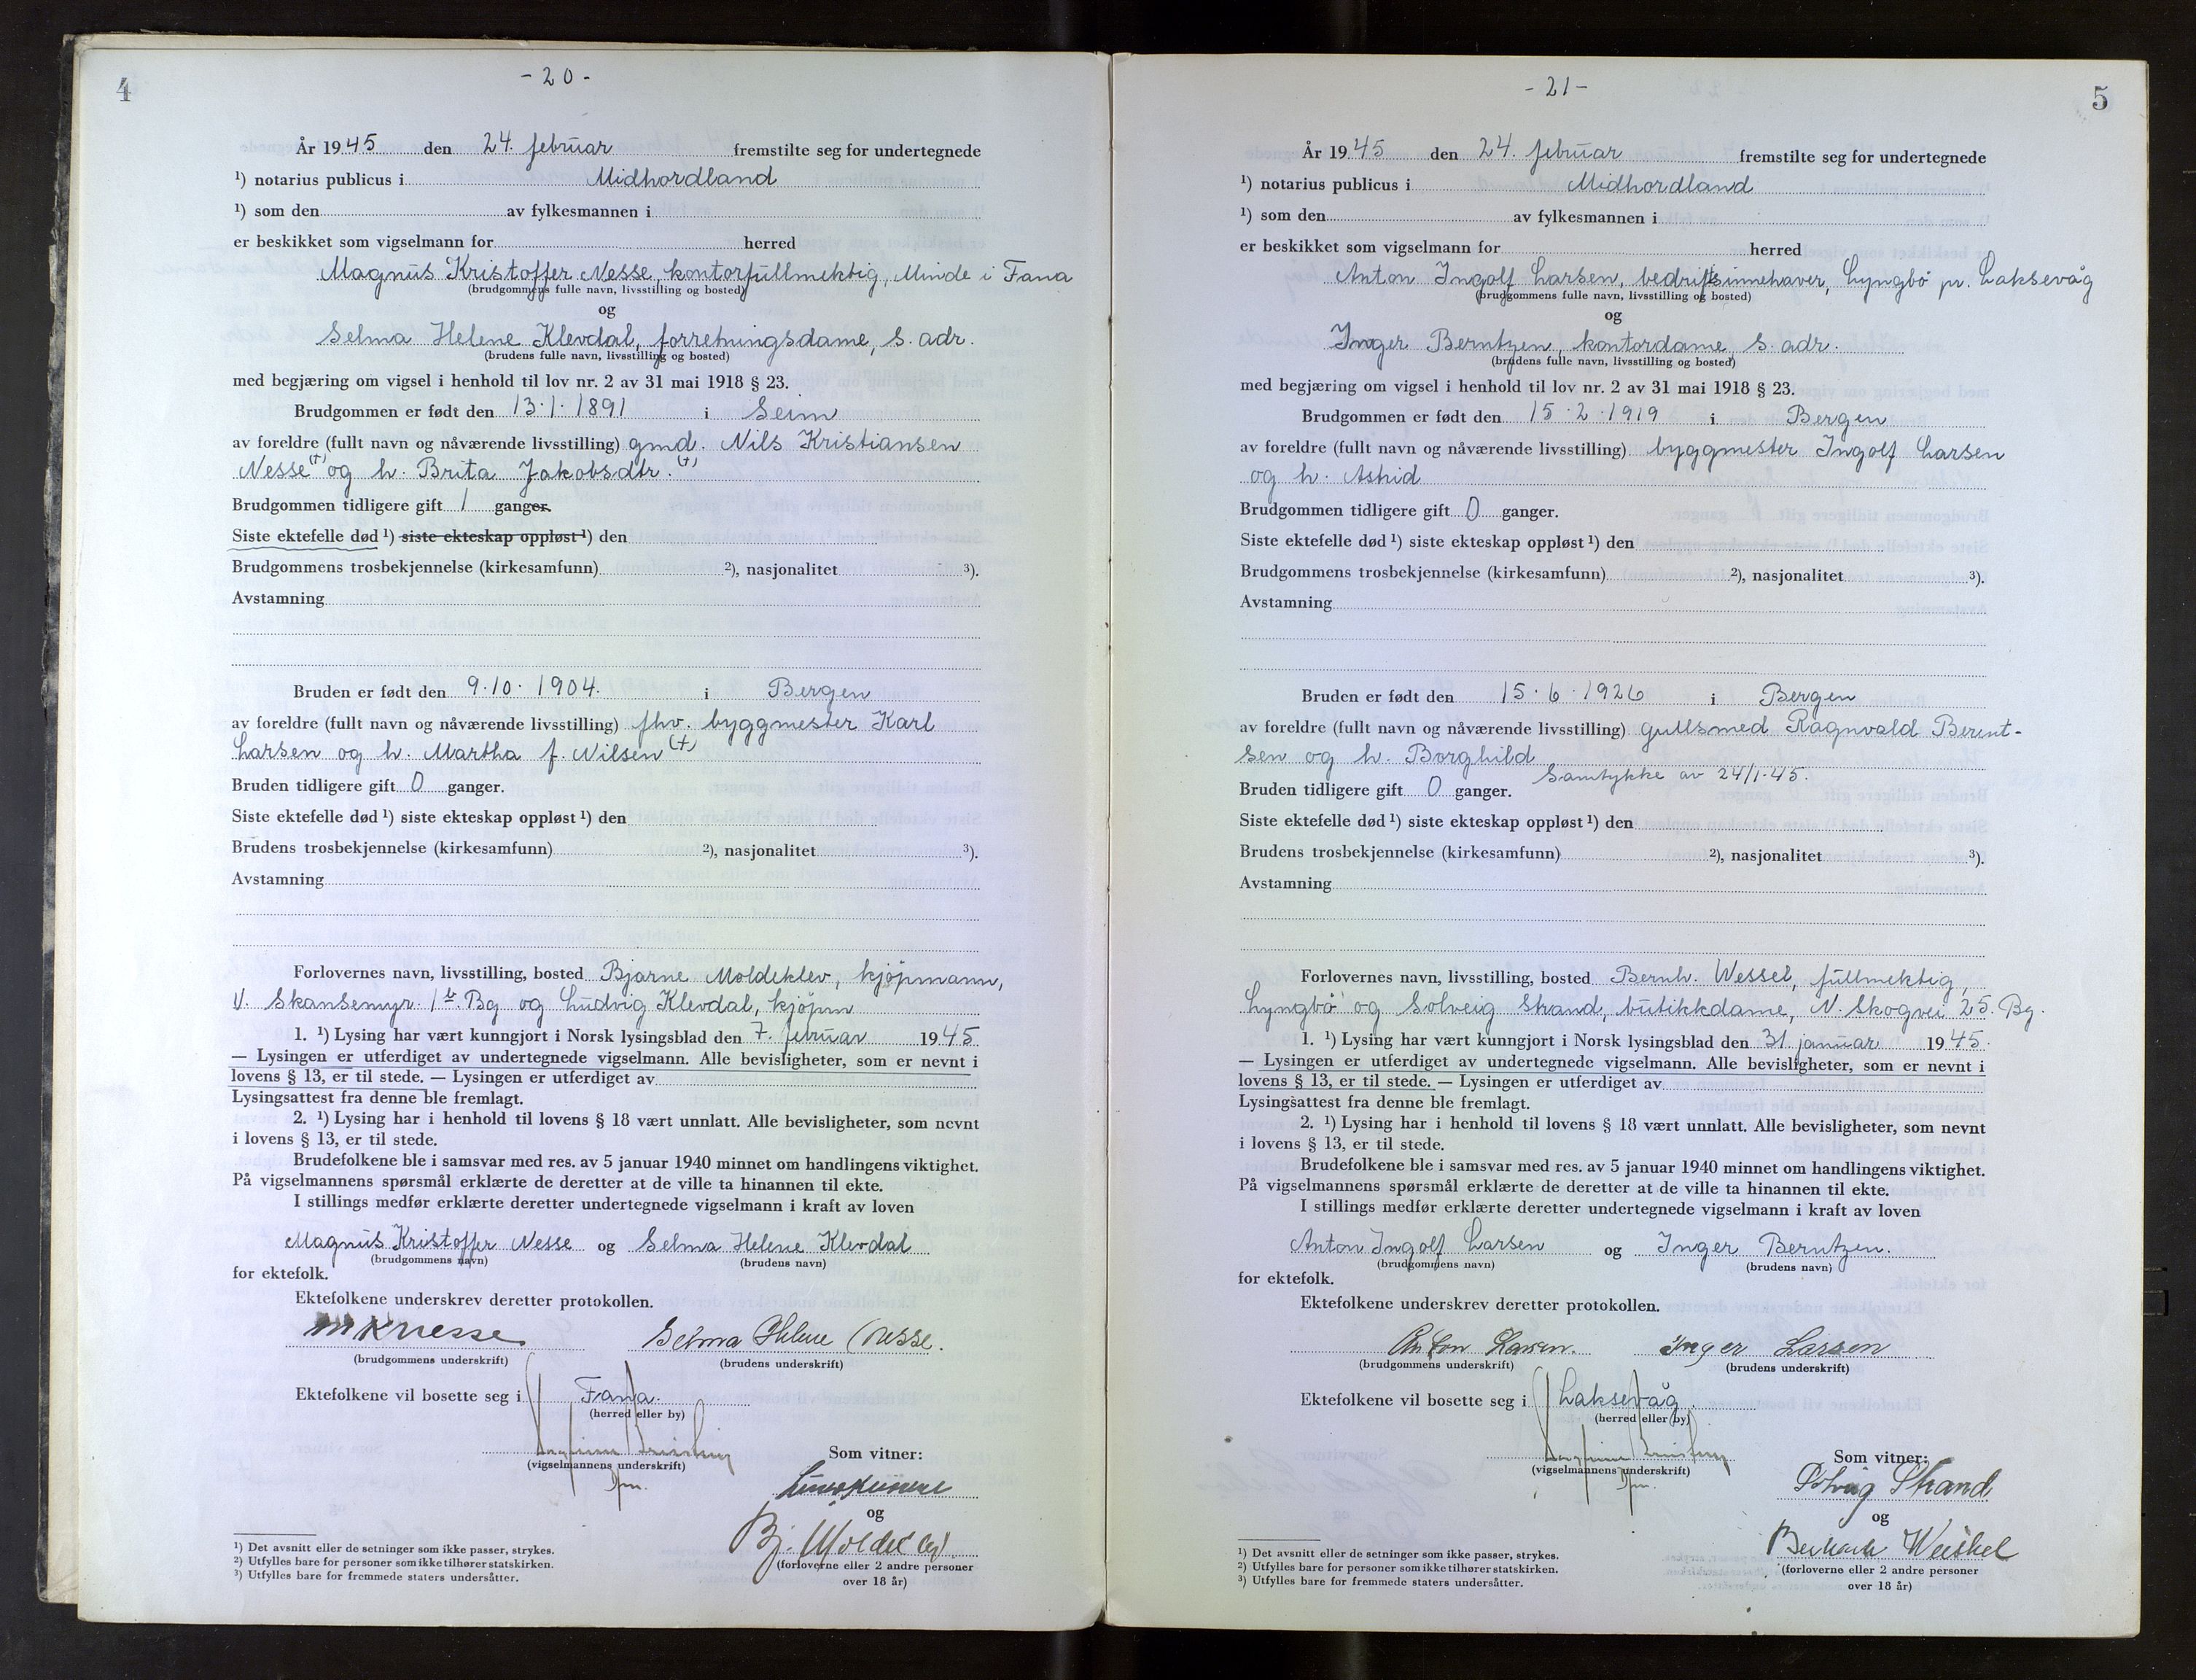 4
- 20 -
År 1945 den 24. februar fremstilte seg for undertegnede
¹) notarius publicus i Midhordland
¹) som den av fylkesmannen i
er beskikket som vigselmann for herred
Magnus Kristoffer Nesse, kontorfullmektig, Minde i Fana
(brudgommens fulle navn, livsstilling og bosted)
og
Selma Helene Klevdal, forretningsdame, s. adr.
(brudens fulle navn, livsstilling og bosted)
med begjæring om vigsel i henhold til lov nr. 2 av 31 mai 1918 § 23.
Brudgommen er født den 13.1.1891 i Seim
av foreldre (fullt navn og nåværende livsstilling) gmd. Nils Kristiansen
Nesse (†) og h. Brita Jakobsdtr. (†)
Brudgommen tidligere gift 1 ganger.
Siste ektefelle død ¹) siste ekteskap oppløst ¹) den
Brudgommens trosbekjennelse (kirkesamfunn) ²), nasjonalitet ³).
Avstamning
Bruden er født den 9.10.1904. i Bergen
av foreldre (fullt navn og nåværende livsstilling) fhv. byggmester Karl
Larsen og h. Martha f. Nilsen (†)
Bruden tidligere gift 0 ganger.
Siste ektefelle død ¹) siste ekteskap oppløst ¹) den
Brudens trosbekjennelse (kirkesamfunn) ²), nasjonalitet ³).
Avstamning
Forlovernes navn, livsstilling, bosted Bjarne Moldeklev, kjöpmann,
V. Skansemyr. 1 b. Bg og Ludvig Klevdal, kjöpm
1. ¹) Lysing har vært kunngjort i Norsk lysingsblad den 7. februar 1945
— Lysingen er utferdiget av undertegnede vigselmann. Alle bevisligheter, som er nevnt i
lovens § 13, er til stede. — Lysingen er utferdiget av
Lysingsattest fra denne ble fremlagt.
2. ¹) Lysing har i henhold til lovens § 18 vært unnlatt. Alle bevisligheter, som nevnt
i lovens § 13, er til stede.
Brudefolkene ble i samsvar med res. av 5 januar 1940 minnet om handlingens viktighet.
På vigselmannens spørsmål erklærte de deretter at de ville ta hinannen til ekte.
I stillings medfør erklærte deretter undertegnede vigselmann i kraft av loven
Magnus Kristoffer Nesse og Selma Helene Klevdal
(brudgommens navn) (brudens navn)
for ektefolk.
Ektefolkene underskrev deretter protokollen.
M K Nesse Selma Helene Nesse.
(brudgommens underskrift) (brudens underskrift)
Ektefolkene vil bosette seg i Fana.
(herred eller by)
Som vitner:
(vigselmannens underskrift)
og
Bj. Moldeklev
(forloverne eller 2 andre personer
over 18 år)
¹) Det avsnitt eller de setninger som ikke passer, strykes.
²) Utfylles bare for personer som ikke tilhører statskirken.
³) Utfylles bare for fremmede staters undersåtter.
5
- 21 -
År 1945 den 24. februar fremstilte seg for undertegnede
¹) notarius publicus i Midhordland
¹) som den av fylkesmannen i
er beskikket som vigselmann for herred
Anton Ingolf Larsen, bedriftsinnehaver, Lyngbö pr. Laksevåg
(brudgommens fulle navn, livsstilling og bosted)
og
Inger Berntzen, kontordame, s. adr.
(brudens fulle navn, livsstilling og bosted)
med begjæring om vigsel i henhold til lov nr. 2 av 31 mai 1918 § 23.
Brudgommen er født den 15.2.1919 i Bergen
av foreldre (fullt navn og nåværende livsstilling) byggmester Ingolf Larsen
og h. Astrid
Brudgommen tidligere gift 0 ganger.
Siste ektefelle død ¹) siste ekteskap oppløst ¹) den
Brudgommens trosbekjennelse (kirkesamfunn) ²), nasjonalitet ³).
Avstamning
Bruden er født den 15.6.1926 i Bergen
av foreldre (fullt navn og nåværende livsstilling) gullsmed Ragnvald Bernt-
sen og h. Borghild
Samtykke av 24/1-45.
Bruden tidligere gift 0 ganger.
Siste ektefelle død ¹) siste ekteskap oppløst ¹) den
Brudens trosbekjennelse (kirkesamfunn) ²), nasjonalitet ³).
Avstamning
Forlovernes navn, livsstilling, bosted Bernh. Wessel, fullmektig,
Lyngbö og Solveig Strand, butikkdame, N. Skogvei 25. Bg.
1. ¹) Lysing har vært kunngjort i Norsk lysingsblad den 31 januar 1945.
— Lysingen er utferdiget av undertegnede vigselmann. Alle bevisligheter, som er nevnt i
lovens § 13, er til stede. — Lysingen er utferdiget av
Lysingsattest fra denne ble fremlagt.
2. ¹) Lysing har i henhold til lovens § 18 vært unnlatt. Alle bevisligheter, som nevnt
i lovens § 13, er til stede.
Brudefolkene ble i samsvar med res. av 5 januar 1940 minnet om handlingens viktighet.
På vigselmannens spørsmål erklærte de deretter at de ville ta hinannen til ekte.
I stillings medfør erklærte deretter undertegnede vigselmann i kraft av loven
Anton Ingolf Larsen og Inger Berntzen.
(brudgommens navn) (brudens navn)
for ektefolk.
Ektefolkene underskrev deretter protokollen.
Anton Larsen. Inger Larsen
(brudgommens underskrift) (brudens underskrift)
Ektefolkene vil bosette seg i Laksevåg.
(herred eller by)
Som vitner:
(vigselmannens underskrift)
Solveig Strand
og
(forloverne eller 2 andre personer
over 18 år)
¹) Det avsnitt eller de setninger som ikke passer, strykes.
²) Utfylles bare for personer som ikke tilhører statskirken.
³) Utfylles bare for fremmede staters undersåtter.